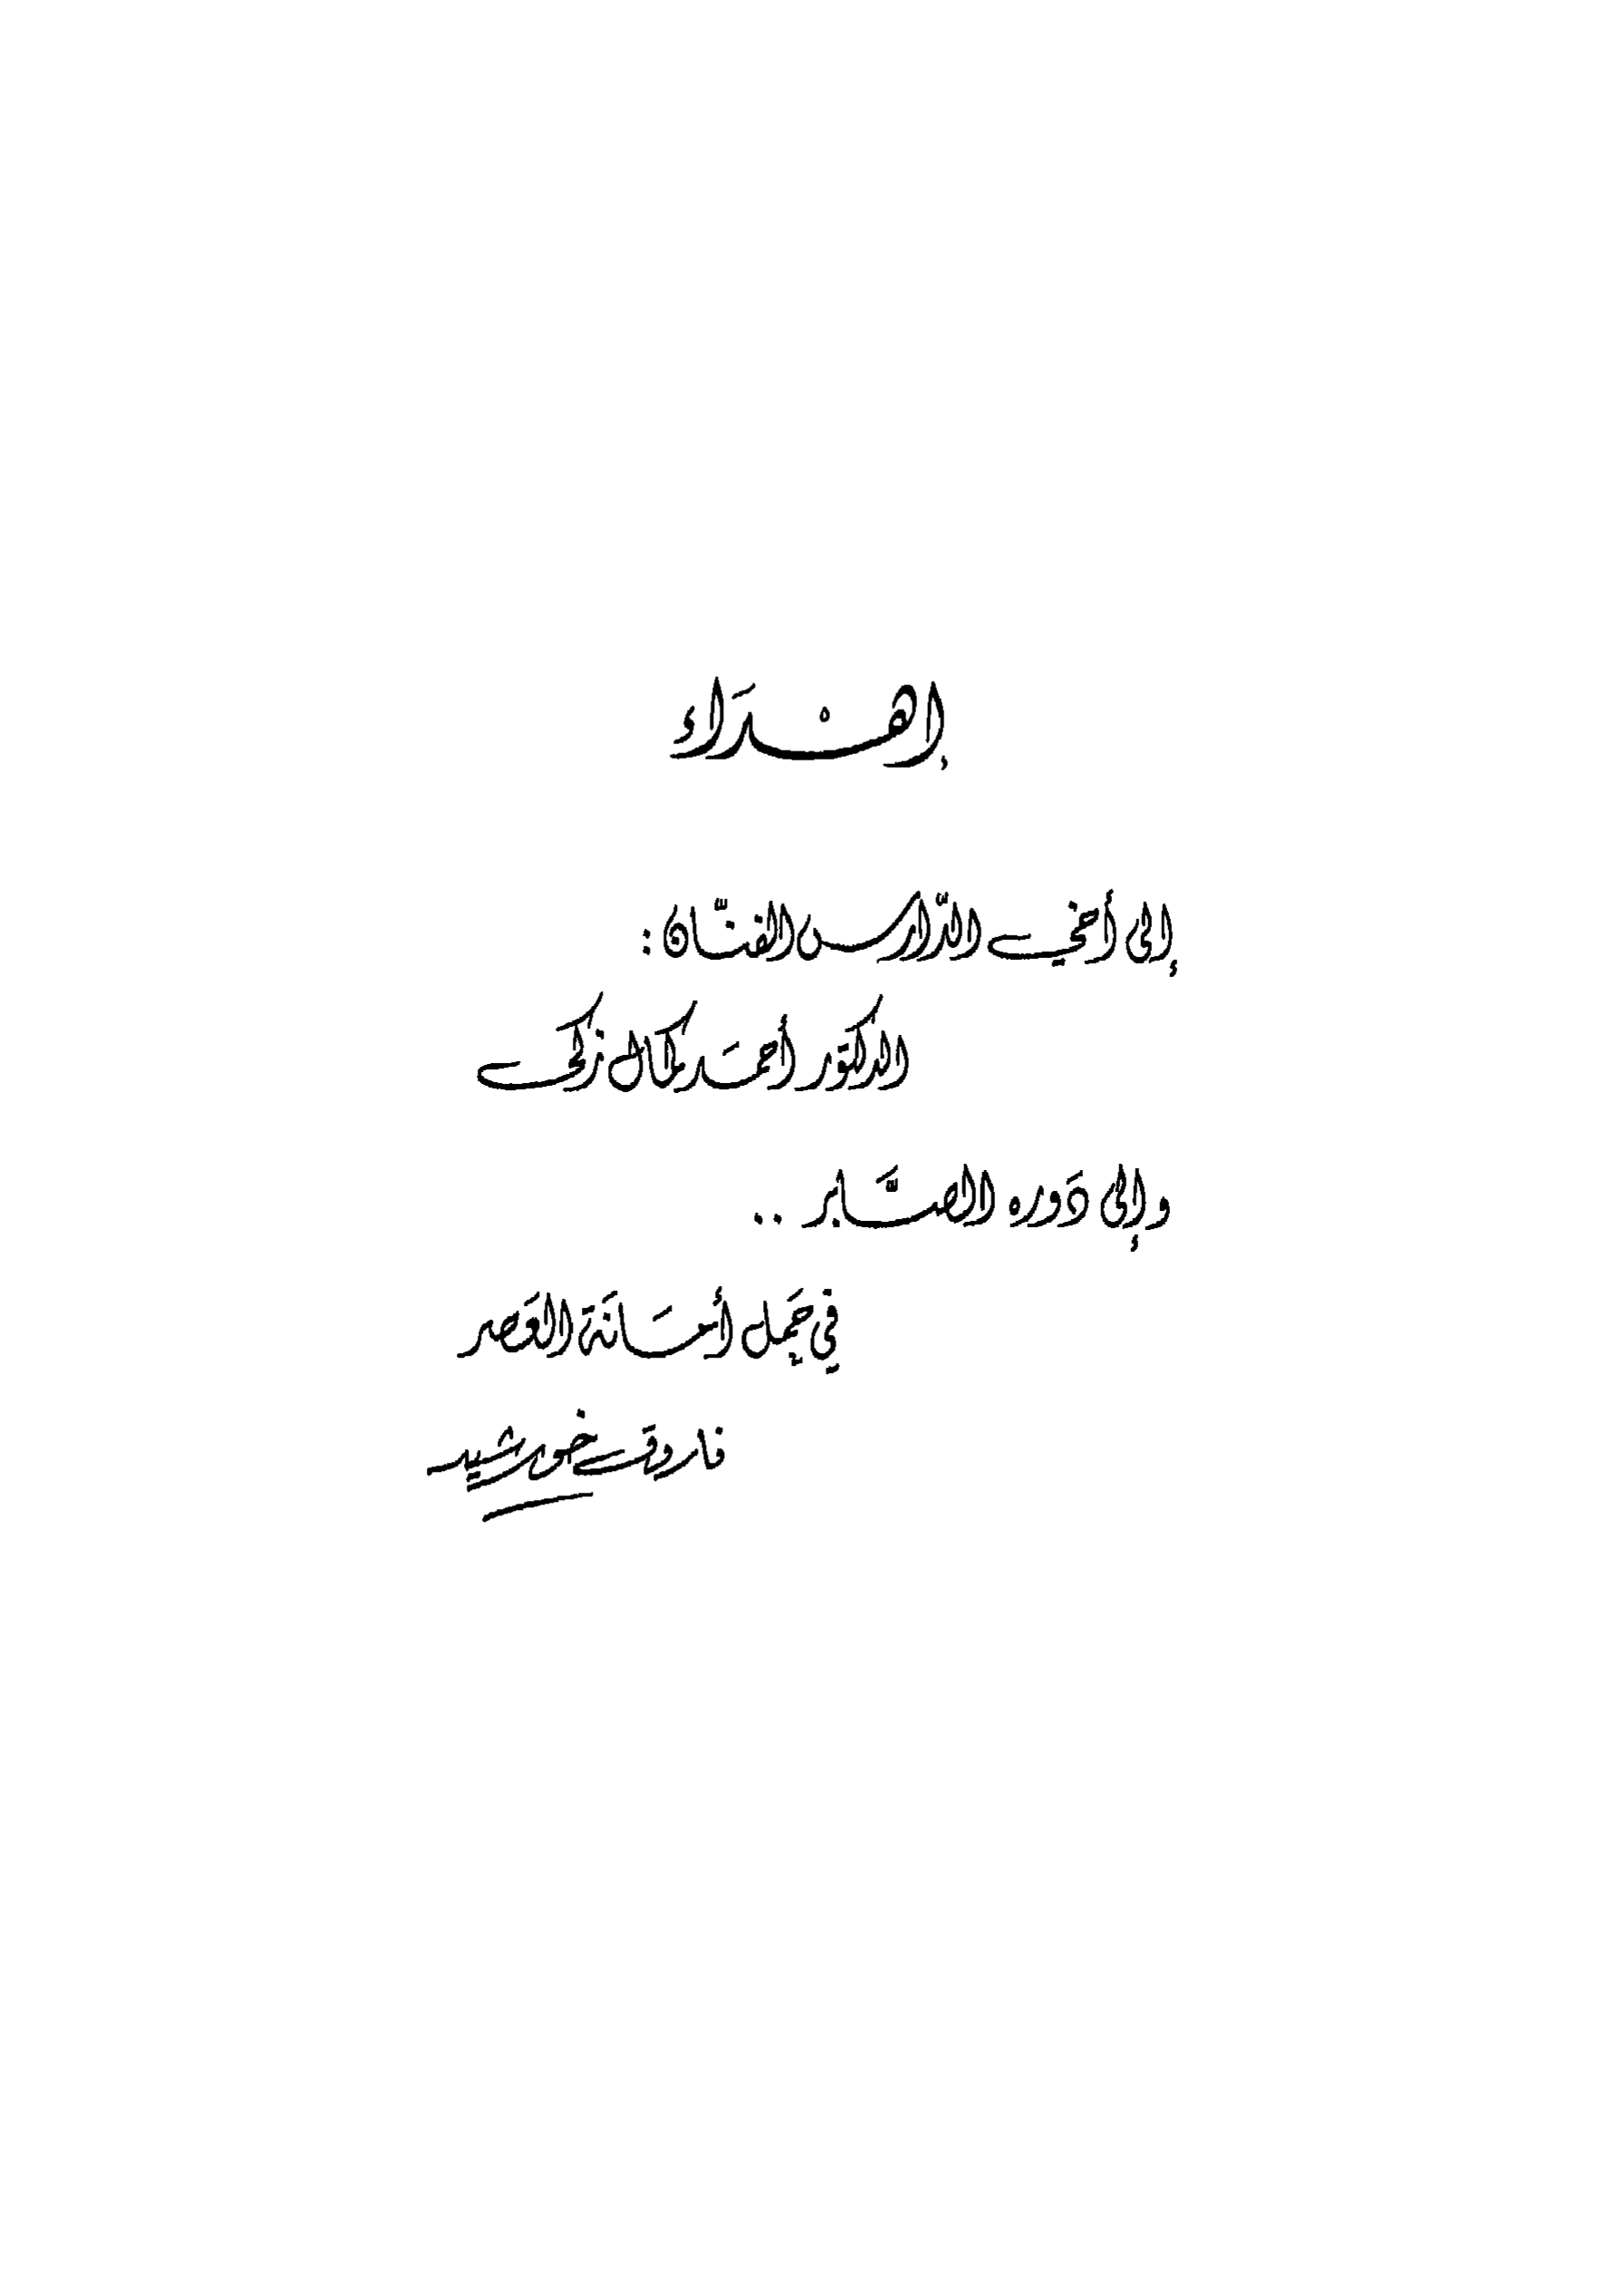 إهْدَاء
إلى أخي الدّارس الفنّان :
الدكتور أحمَد كمال زكى
وإلى دَوره الصَّابر ..
في حَمِل أمَانَة العَصر
فاروق خورشيد